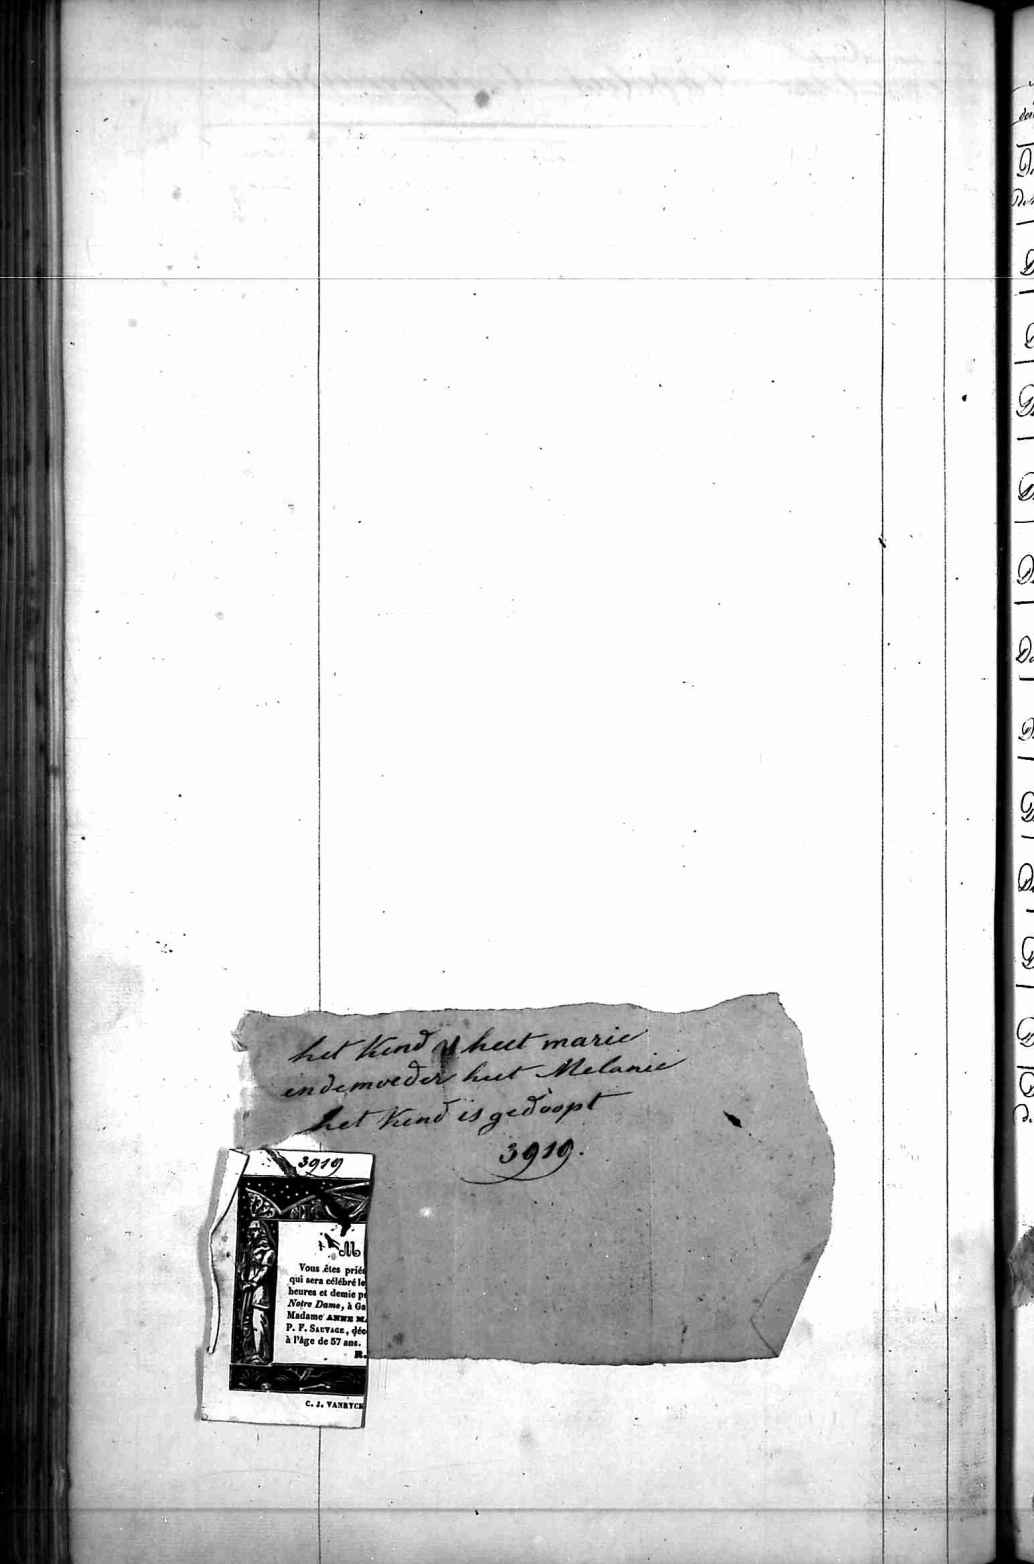 het Kend heet marie
en de moeder heet Melanie
het Kend is gedoopt
3919.
3919
M
Vous êtes prié
qui sera célébré le
heures et demie
Notre Dame, à
Madame ANNE
P. F. SAUVAGE,
à l'âge de 57 ans.
R.
C. J. VANRYCK